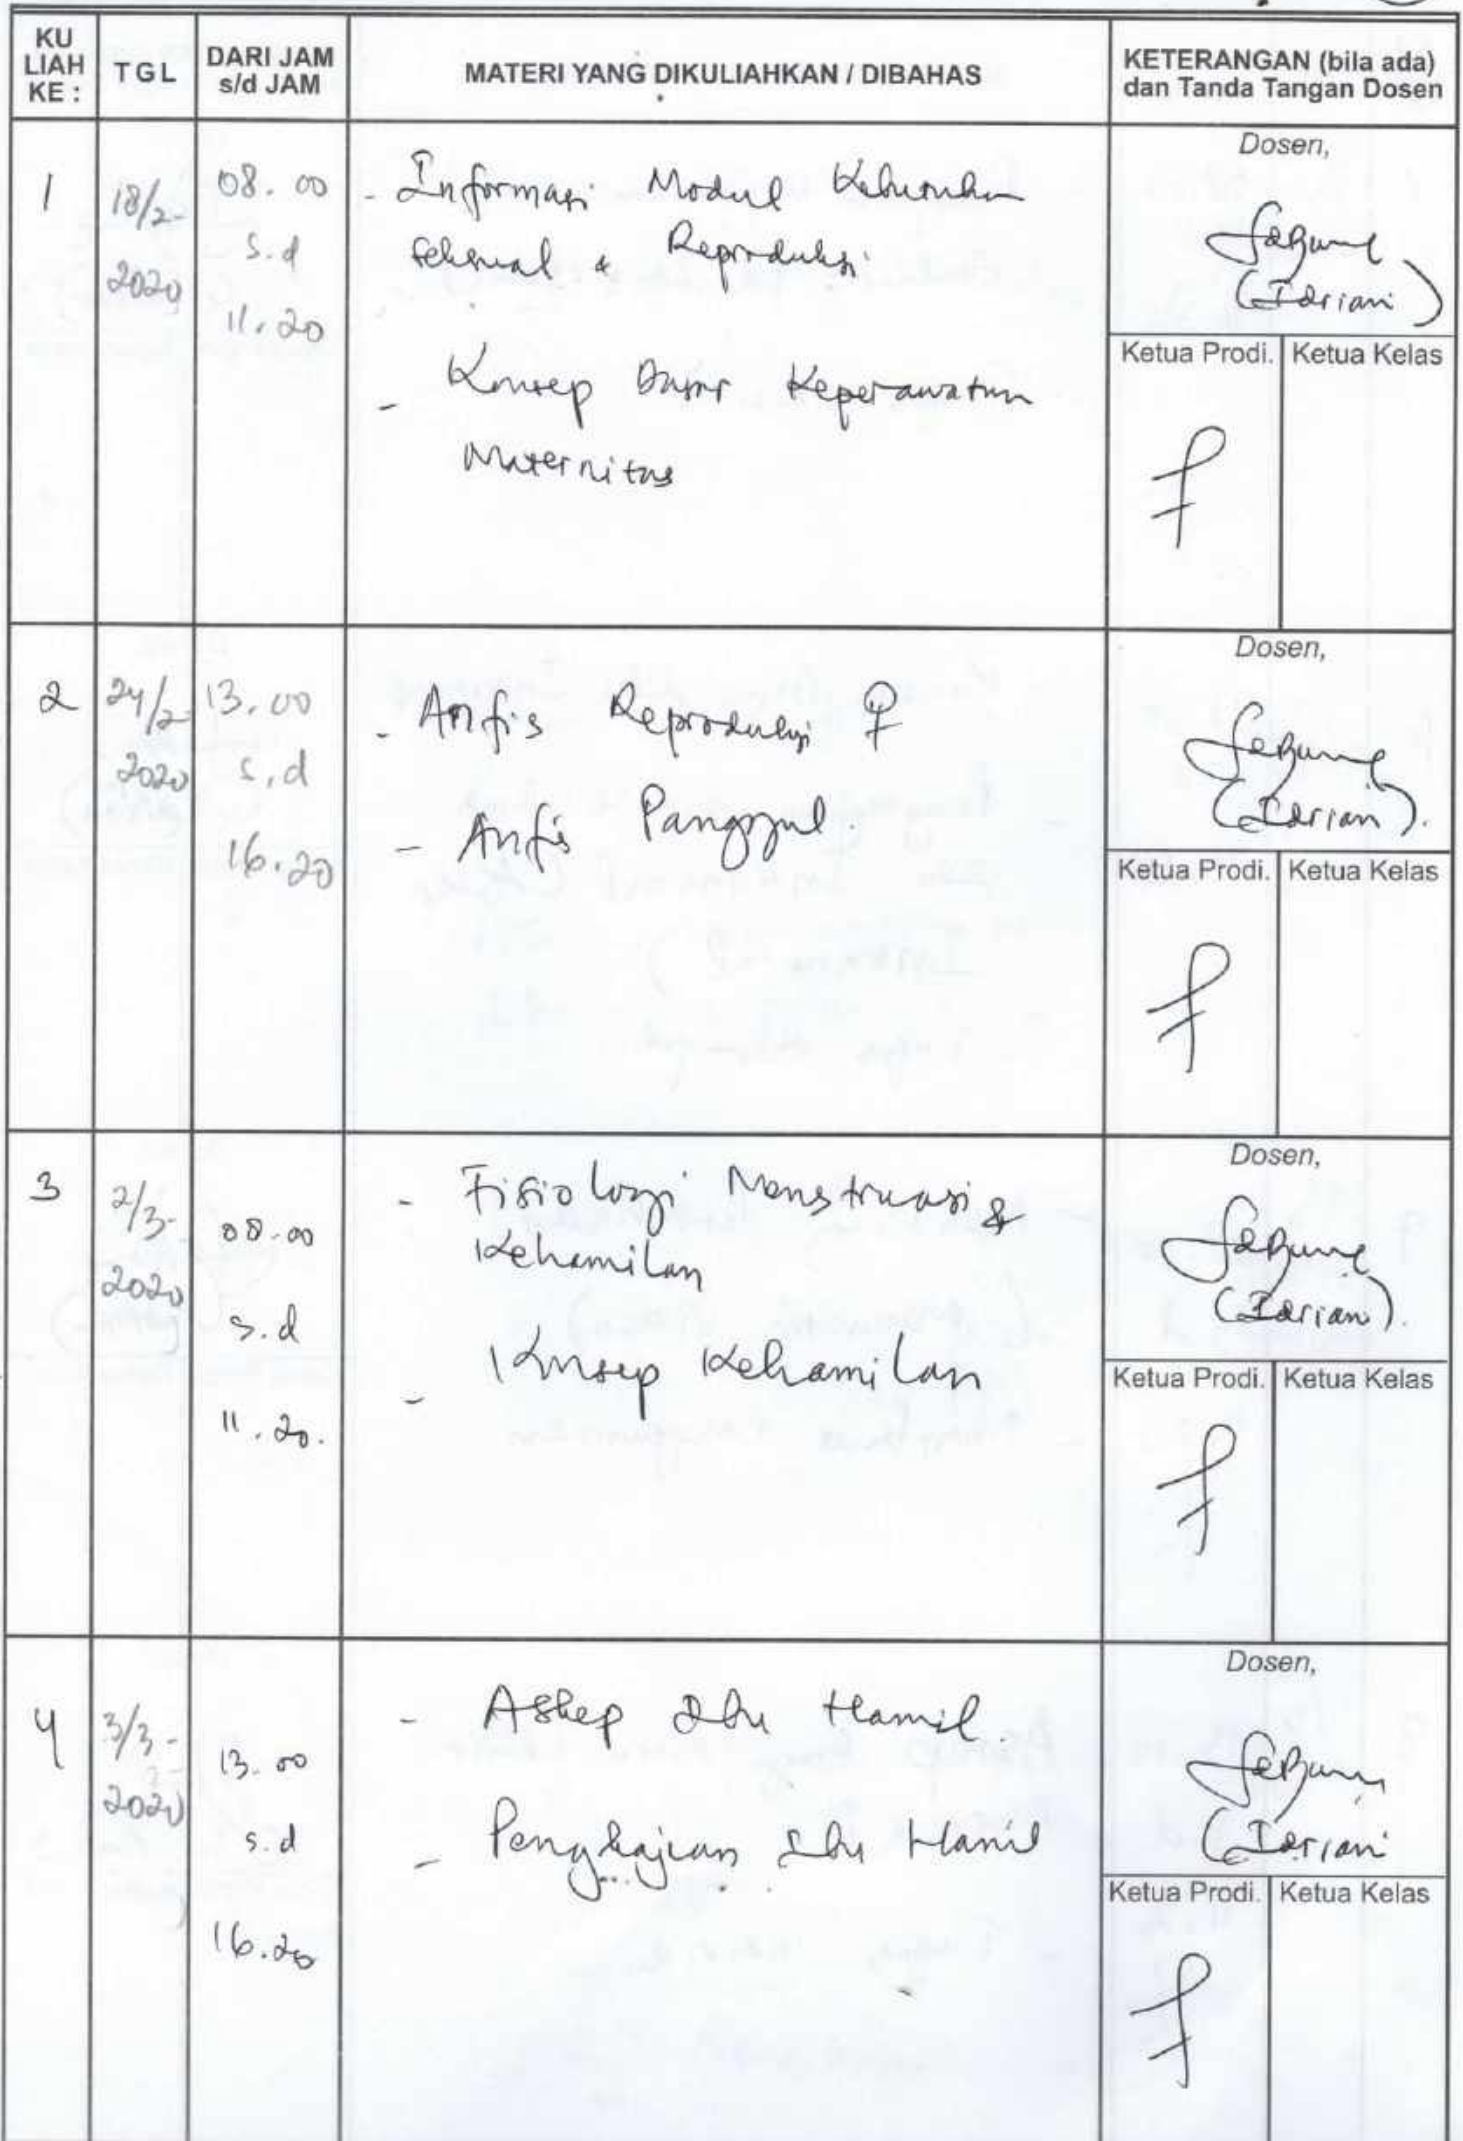 KU LIAH KE : TGL DARI JAM s/d JAM MATERI YANG DIKULIAHKAN / DIBAHAS KETERANGAN (bila ada) dan Tanda Tangan Dosen
1 18/2- 2020 08.00 s.d 11.20
- Informasi Modul Kebutuhan
Seksual & Reproduksi
- Konsep Dasar Keperawatan
Maternitas
Dosen,
Ketua Prodi. Ketua Kelas
2 24/2- 2020 13.00 s.d 16.20
- Anfis Reproduksi ♀
- Anfis Panggul.
Dosen,
Ketua Prodi. Ketua Kelas
3 2/3- 2020 08.00 s.d 11.20.
- Fisiologi Menstruasi &
Kehamilan
- Konsep Kehamilan
Dosen,
Ketua Prodi. Ketua Kelas
4 3/3- 2020 13.00 s.d 16.20
- Askep Ibu Hamil.
- Pengkajian Ibu Hamil
Dosen,
Ketua Prodi. Ketua Kelas